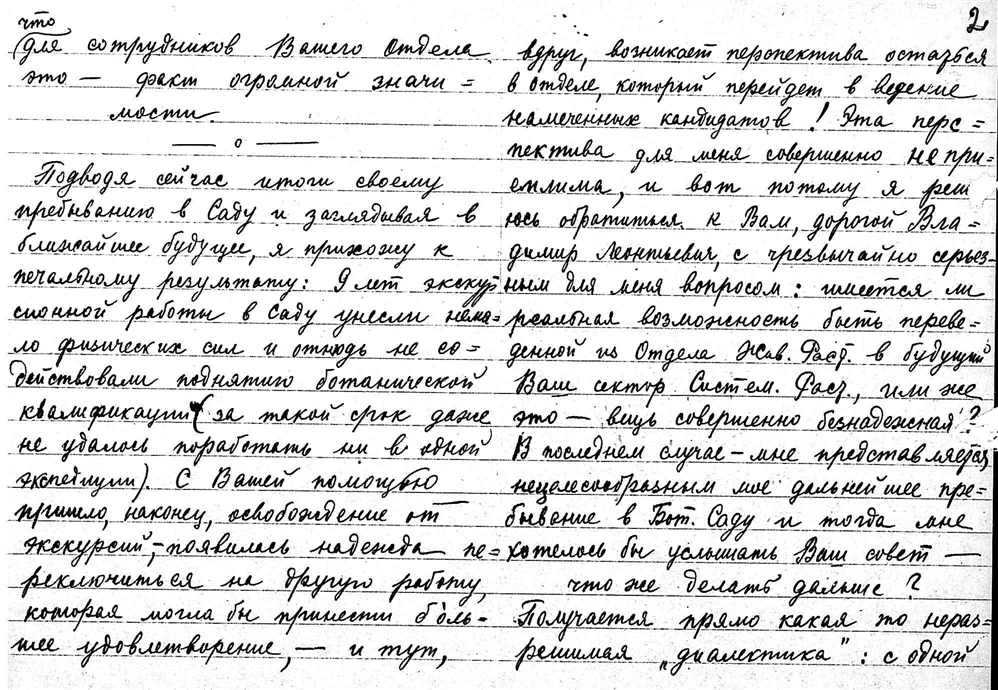 2
что
для сотрудников Вашего Отдела
это — факт огромной значи=
мости.
— о —
Подводя сейчас итоги своему
пребыванию в Саду и заглядывая в
ближайшее будущее, я прихожу к
печальному результату: 9 лет экскур
сионной работы в Саду унесли нема=
ло физических сил и отнюдь не со=
действовали поднятию ботанической
квалификации (за такой срок даже
не удалось поработать ни в одной
экспедиции). С Вашей помощью
пришло, наконец, освобождение от
экскурсий, — появилась надежда пе=
реключиться на другую работу,
которая могла бы принести боль-
шее удовлетворение, — и тут,
вдруг, возникает перспектива остаться
в отделе, который перейдет в ведение
намеченных кандидатов! Эта перс=
пектива для меня совершенно непри=
емлима, и вот потому я реш
юсь обратиться к Вам, дорогой Вла=
димир Леонтьевич, с чрезвычайно серьез-
ным для меня вопросом: имеется ли
реальная возможность быть переве=
денной из Отдела Жив. Раст. в будущий
Ваш сектор Систем. Раст., или же
это — вещь совершенно безнадежная?
В последнем случае — мне представляется
нецелесообразным мое дальнейшее пре=
бывание в Бот. Саду и тогда мне
хотелось бы услышать Ваш совет —
что же делать дальше?
Получается прямо какая то нераз=
решимая „диалектика": с одной